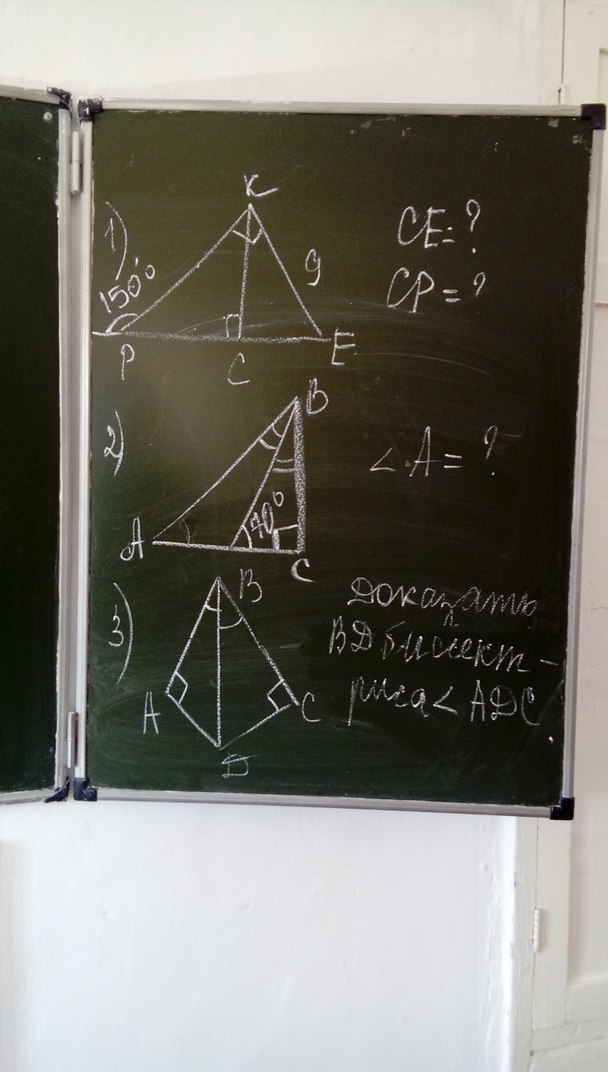 1)
K
150°
9
P
C
E
CE=?
CP=?
2)
B
A
70°
C
∠A=?
3)
B
A
C
Д
Доказать
ВД биссект-
риса ∠ АДС